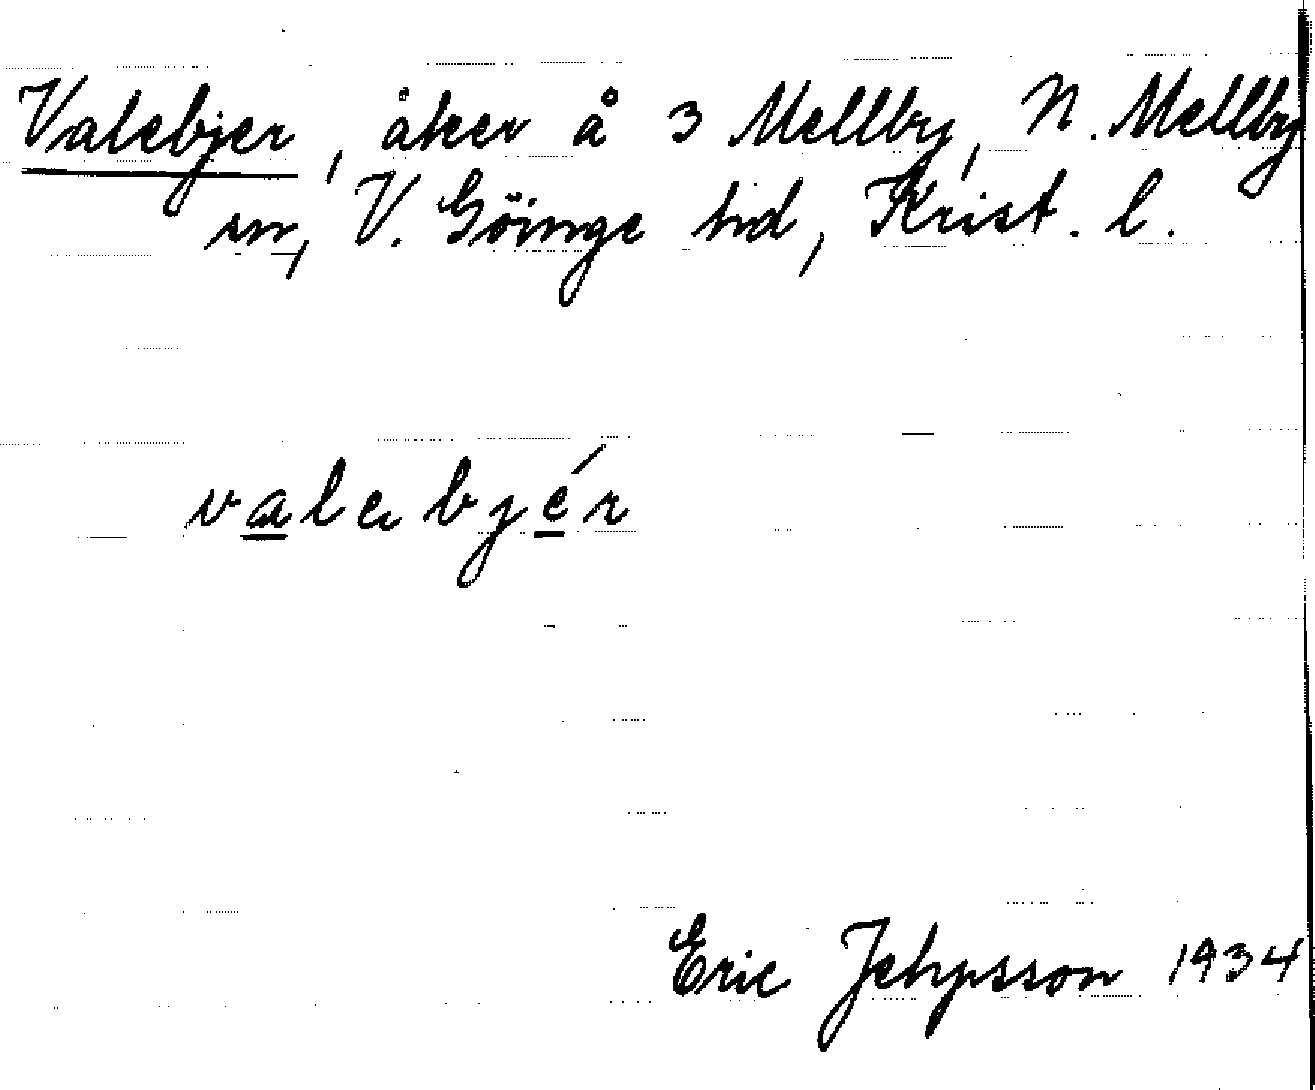 Valebjer, åker å 3 Mellby, N. Mellby
sn, V. Göinge hd, Krist. l.
valebjér
Eric Jehpsson 1934